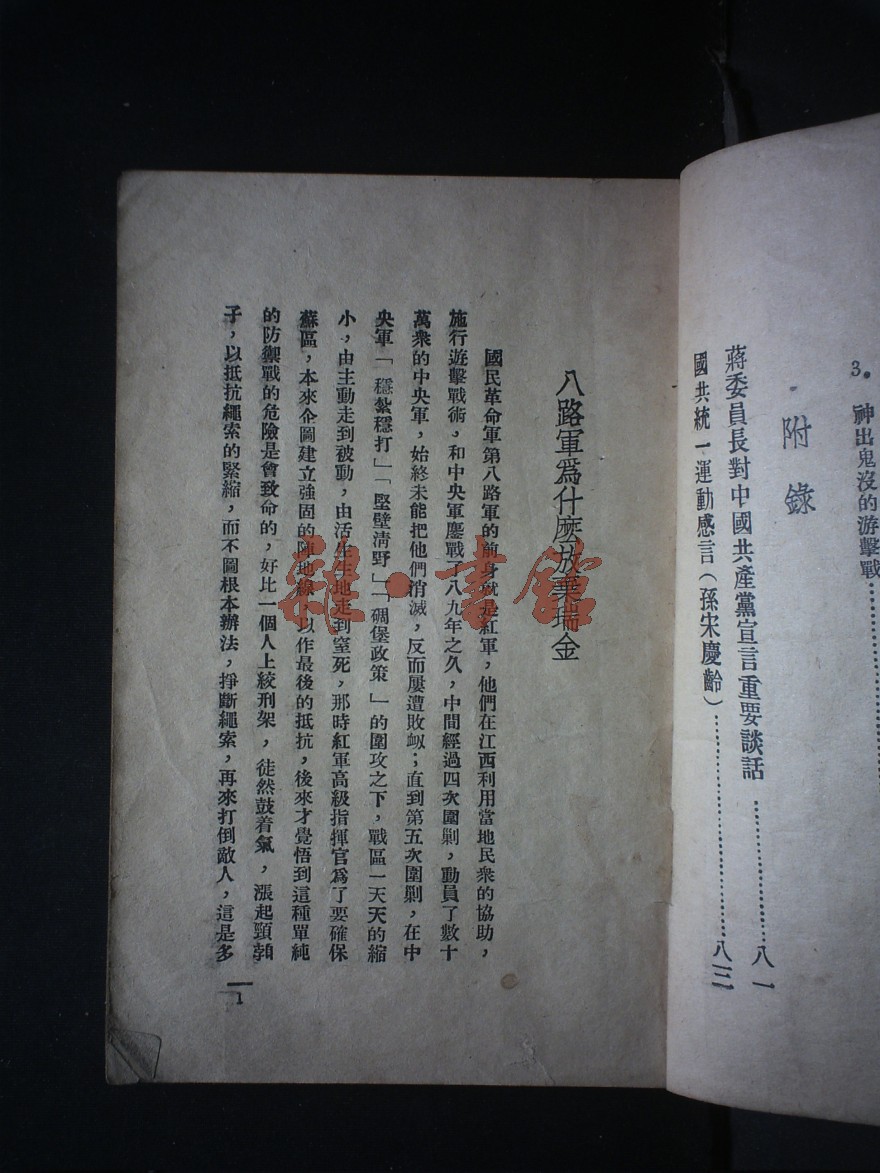 3.神出鬼沒的游擊戰…………
附錄
蔣委員長對中國共產黨宣言重要談話…………八一
國共統一運動感言(孫宋慶齡)…………八三
八路軍爲什麽放棄瑞金
國民革命軍第八路軍的前身就是紅軍,他們在江西利用當地民衆的協助,
施行遊擊戰術,和中央軍鏖戰了八九年之久,中間經過四次圍剿,動員了數十
萬衆的中央軍,始終未能把他們消滅,反而屢遭敗衂;直到第五次圍剿,在中
央軍「穩紮穩打」「堅壁淸野」「碉堡政策」的圍攻之下,戰區一天天的縮
小,由主動走到被動,由活生生地走到窒死,那時紅軍高級指揮官爲了要確保
蘇區,本來企圖建立強固的陣地線,以作最後的抵抗,後來才覺悟到這種單純
的防禦戰的危險是會致命的,好比一個人上絞刑架,徒然鼓着氣,漲起頸
子,以抵抗繩索的緊縮,而不圖根本辦法,掙斷繩索,再來打倒敵人,這是多
1
雜·書館